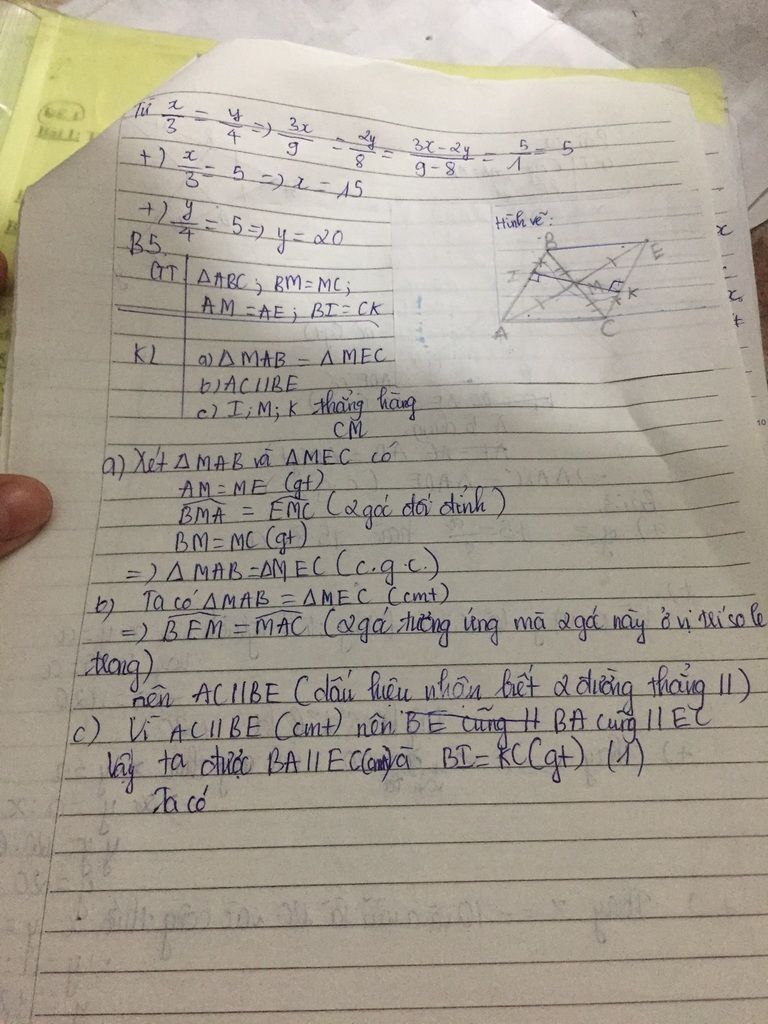 Từ x/3 = y/4 => 3x/9 = 2y/8 = 3x-2y/9-8 = 5/1 = 5
+) x/3 = 5 => x = 15
+) y/4 = 5 => y = 20
Hình vẽ:
B
E
I
M
K
A
C
B5
GT
ΔABC; BM=MC;
AM=AE; BI=CK
KL
a) ΔMAB = ΔMEC
b) AC//BE
c) I; M; K thẳng hàng
CM
a) Xét ΔMAB và ΔMEC có
AM=ME (gt)
BMA = EMC (2 gó đối đỉnh)
BM=MC (gt)
=> ΔMAB=ΔMEC (c.g.c.)
b) Ta có ΔMAB = ΔMEC (cmt)
=> BEM = MAC (2 gó tương ứng mà 2 gó này ở vị trí so le
trong)
nên AC//BE (dấu hiệu nhận biết 2 đường thẳng //)
c) Vì AC//BE (cmt) nên BE cũng // BA cũng // EC
Vậy ta được BA//EC (cmt) và BI=KC (gt) (1)
Ta có